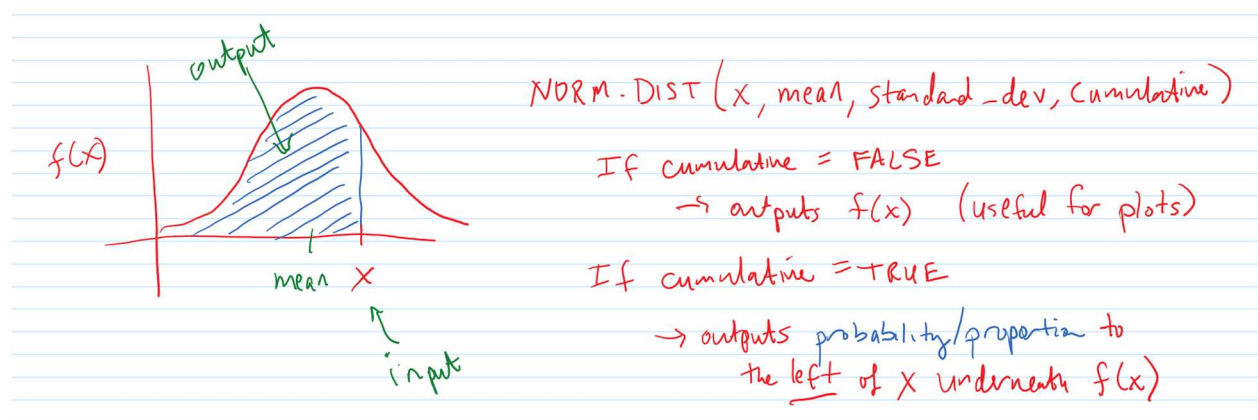 output
f(x)
mean x
input
NORM.DIST(x, mean, standard_dev, cumulative)
If cumulative = FALSE
→ outputs f(x) (useful for plots)
If cumulative = TRUE
→ outputs probability/proportion to
the left of x underneath f(x)